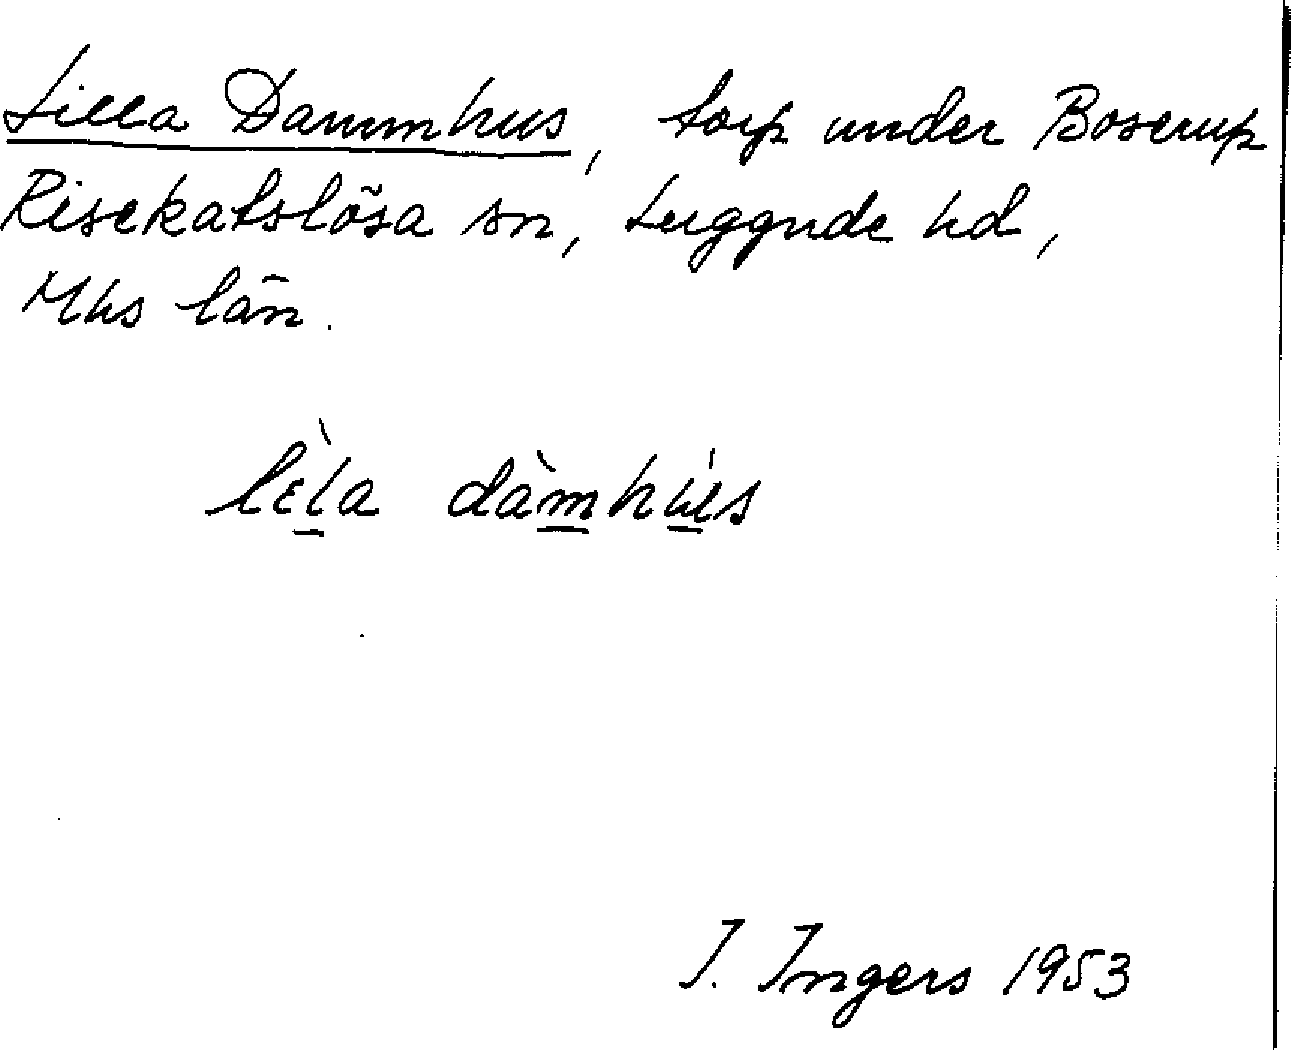 Lilla Dammhus, torp under Boserup
Risekatslösa sn, Luggude hd,
Mhs län.
lɛ̀l̲a dàm̲hu̲s
I. Ingers 1953